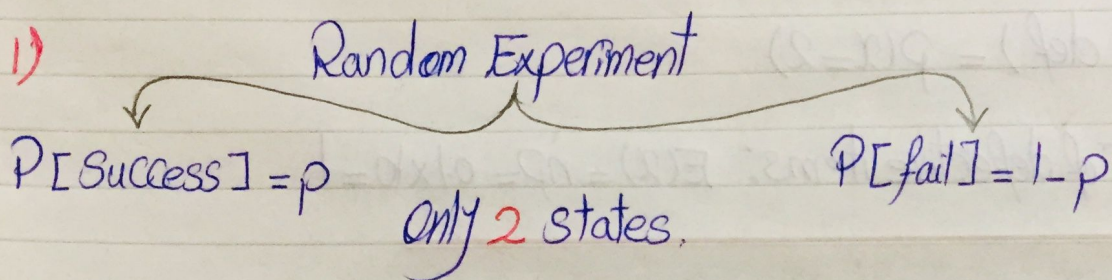 1) Random Experiment
P[Success] = p
P[fail] = 1 - p
Only 2 states.